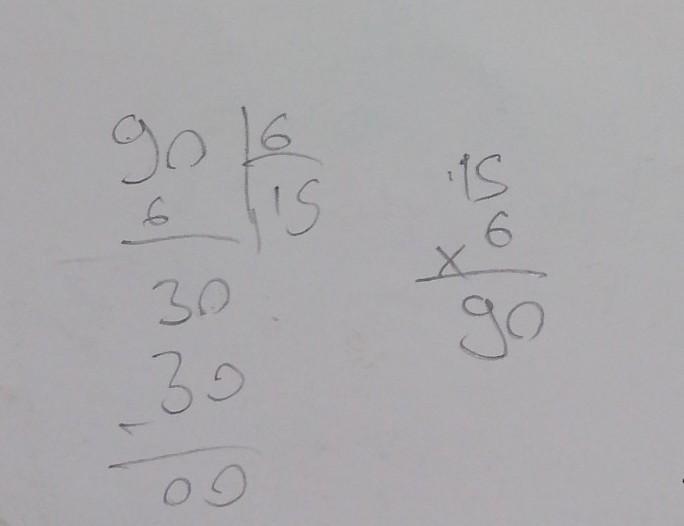 90 6
6 15
30
30
-
00
15
6
x
90